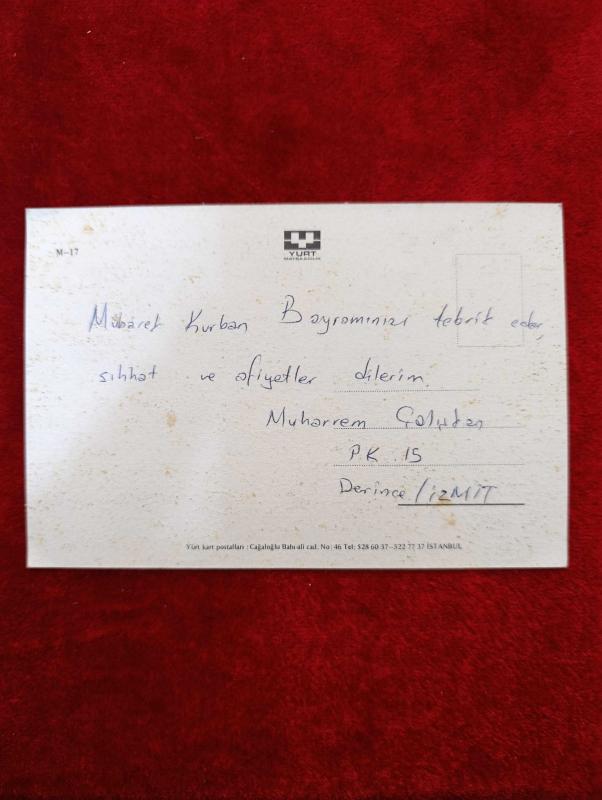 M-17
YURT
MATBAACILIK
Mübarek Kurban Bayramınızı tebrik eder,
sıhhat ve afiyetler dilerim.
Muharrem
P.K 15
Derince / İZMİT
Yurt kart postalları : Cağaloğlu Babı-ali cad. No: 46 Tel: 528 60 37-522 77 37 İSTANBUL